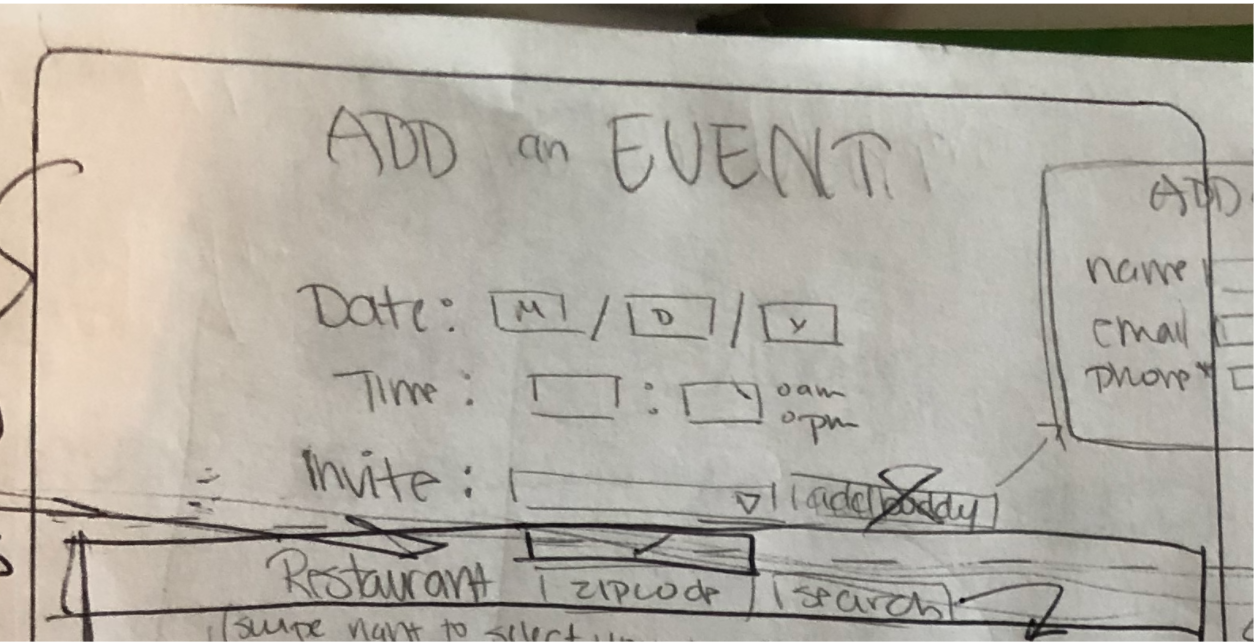 ADD an EVENT
Date: M / D / Y
Time: : am
pm
Invite: add buddy
Restaurant zipcode search
swipe right to select
ADD
name
email
phone*